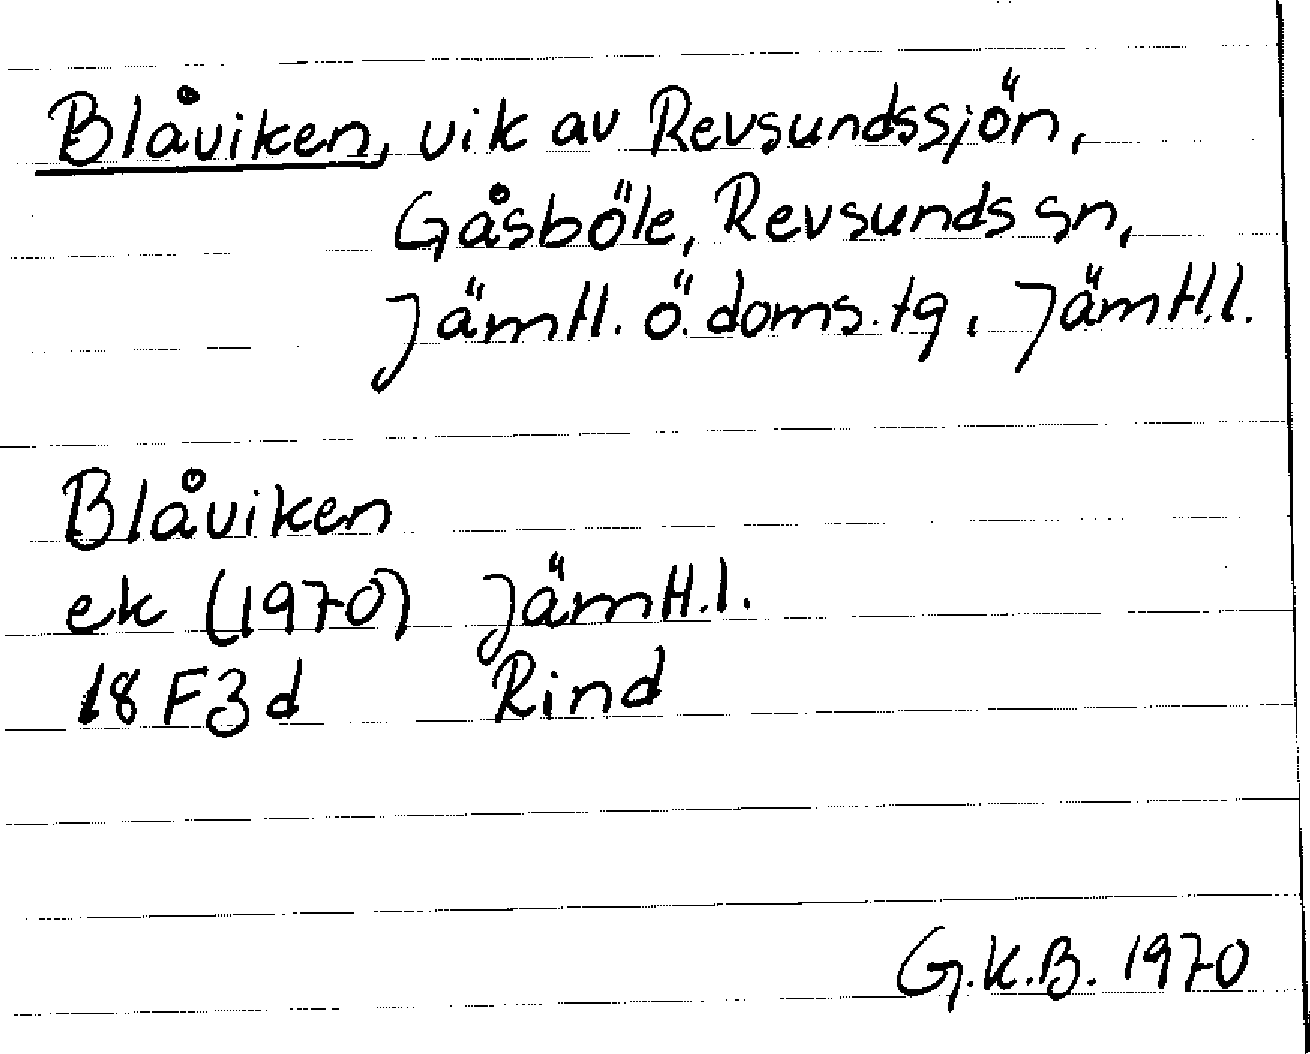 Blåviken, vik av Revsundssjön,
Gåsböle, Revsunds sn,
Jämtl. ö. doms. tg, Jämtl.l.
Blåviken
ek (1970) Jämtl.l.
18 F3d Rind
G.K.B. 1970